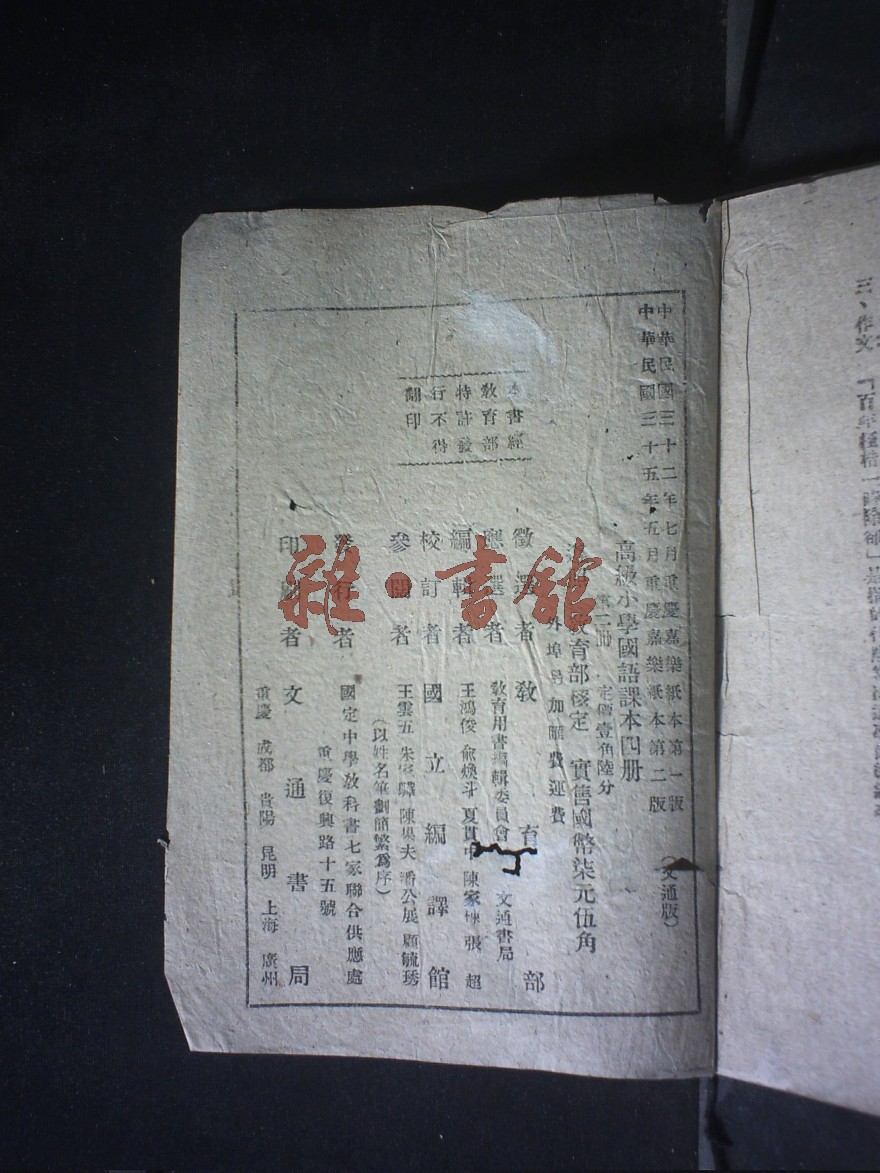 中華民國三十二年七月重慶嘉樂紙本第一版
中華民國三十五年五月重慶嘉樂紙本第二版
（文通版）
高級小學國語課本四册
第二册 定價壹角陸分
教育部核定 實售國幣柒元伍角
外埠另加匯費運費
本書經
教育部
特許發
行不得
翻印
徵選者 教育部
應選者 教育用書編輯委員會 文通書局
編輯者 王鴻俊 俞煥斗 夏貫中 陳家棟 張超
校訂者 國立編譯館
參閱者 王雲五 朱家驊 陳果夫 潘公展 顧毓琇
（以姓名筆劃簡繁為序）
發行者 國定中學教科書七家聯合供應處
重慶復興路十五號
印刷者 文通書局
重慶 成都 貴陽 昆明 上海 廣州
雜·書館
三、作文